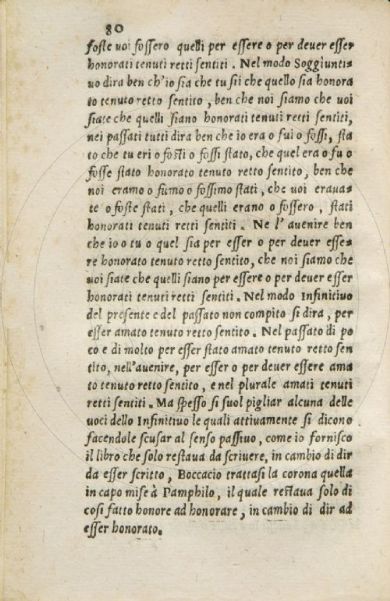 80
foste uoi fossero quelli per essere o per deuer esser
honorati tenuti retti sentiti. Nel modo Soggiunti-
uo dira ben ch'io sia che tu sii che quello sia honora
to tenuto retto sentito, ben che noi siamo che uoi
siate che quelli siano honorati tenuti retti sentiti,
nei passati tutti dira ben che io era o fui o fossi, sta
to che tu eri o fosti o fossi stato, che quel era o fu o
fosse stato honorato tenuto retto sentito, ben che
noi eramo o fumo o fossimo stati, che uoi erauа-
te o foste stati, che quelli erano o fossero, stati
honorati tenuti retti sentiti. Ne l'auenire ben
che io o tu o quel sia per esser o per deuer esse-
re honorato tenuto retto sentito, che noi siamo che
uoi siate che quelli siano per essere o per deuer esser
honorati tenuti retti sentiti. Nel modo Infinitiuo
del presente e del passato non compito si dira, per
esser amato tenuto retto sentito. Nel passato di po
co e di molto per esser stato amato tenuto retto sen
tito, nell'auenire, per esser o per deuer essere ama
to tenuto retto sentito, e nel plurale amati tenuti
retti sentiti. Ma spesso si suol pigliar alcuna delle
uoci dello Infinitiuo le quali attiuamente si dicono
facendole scusar al senso passiuo, come io fornisco
il libro che solo restaua da scriuere, in cambio di dir
da esser scritto, Boccacio trattasi la corona quella
in capo mise à Pamphilo, il quale restaua solo di
cosi fatto honore ad honorare, in cambio di dir ad
esser honorato.